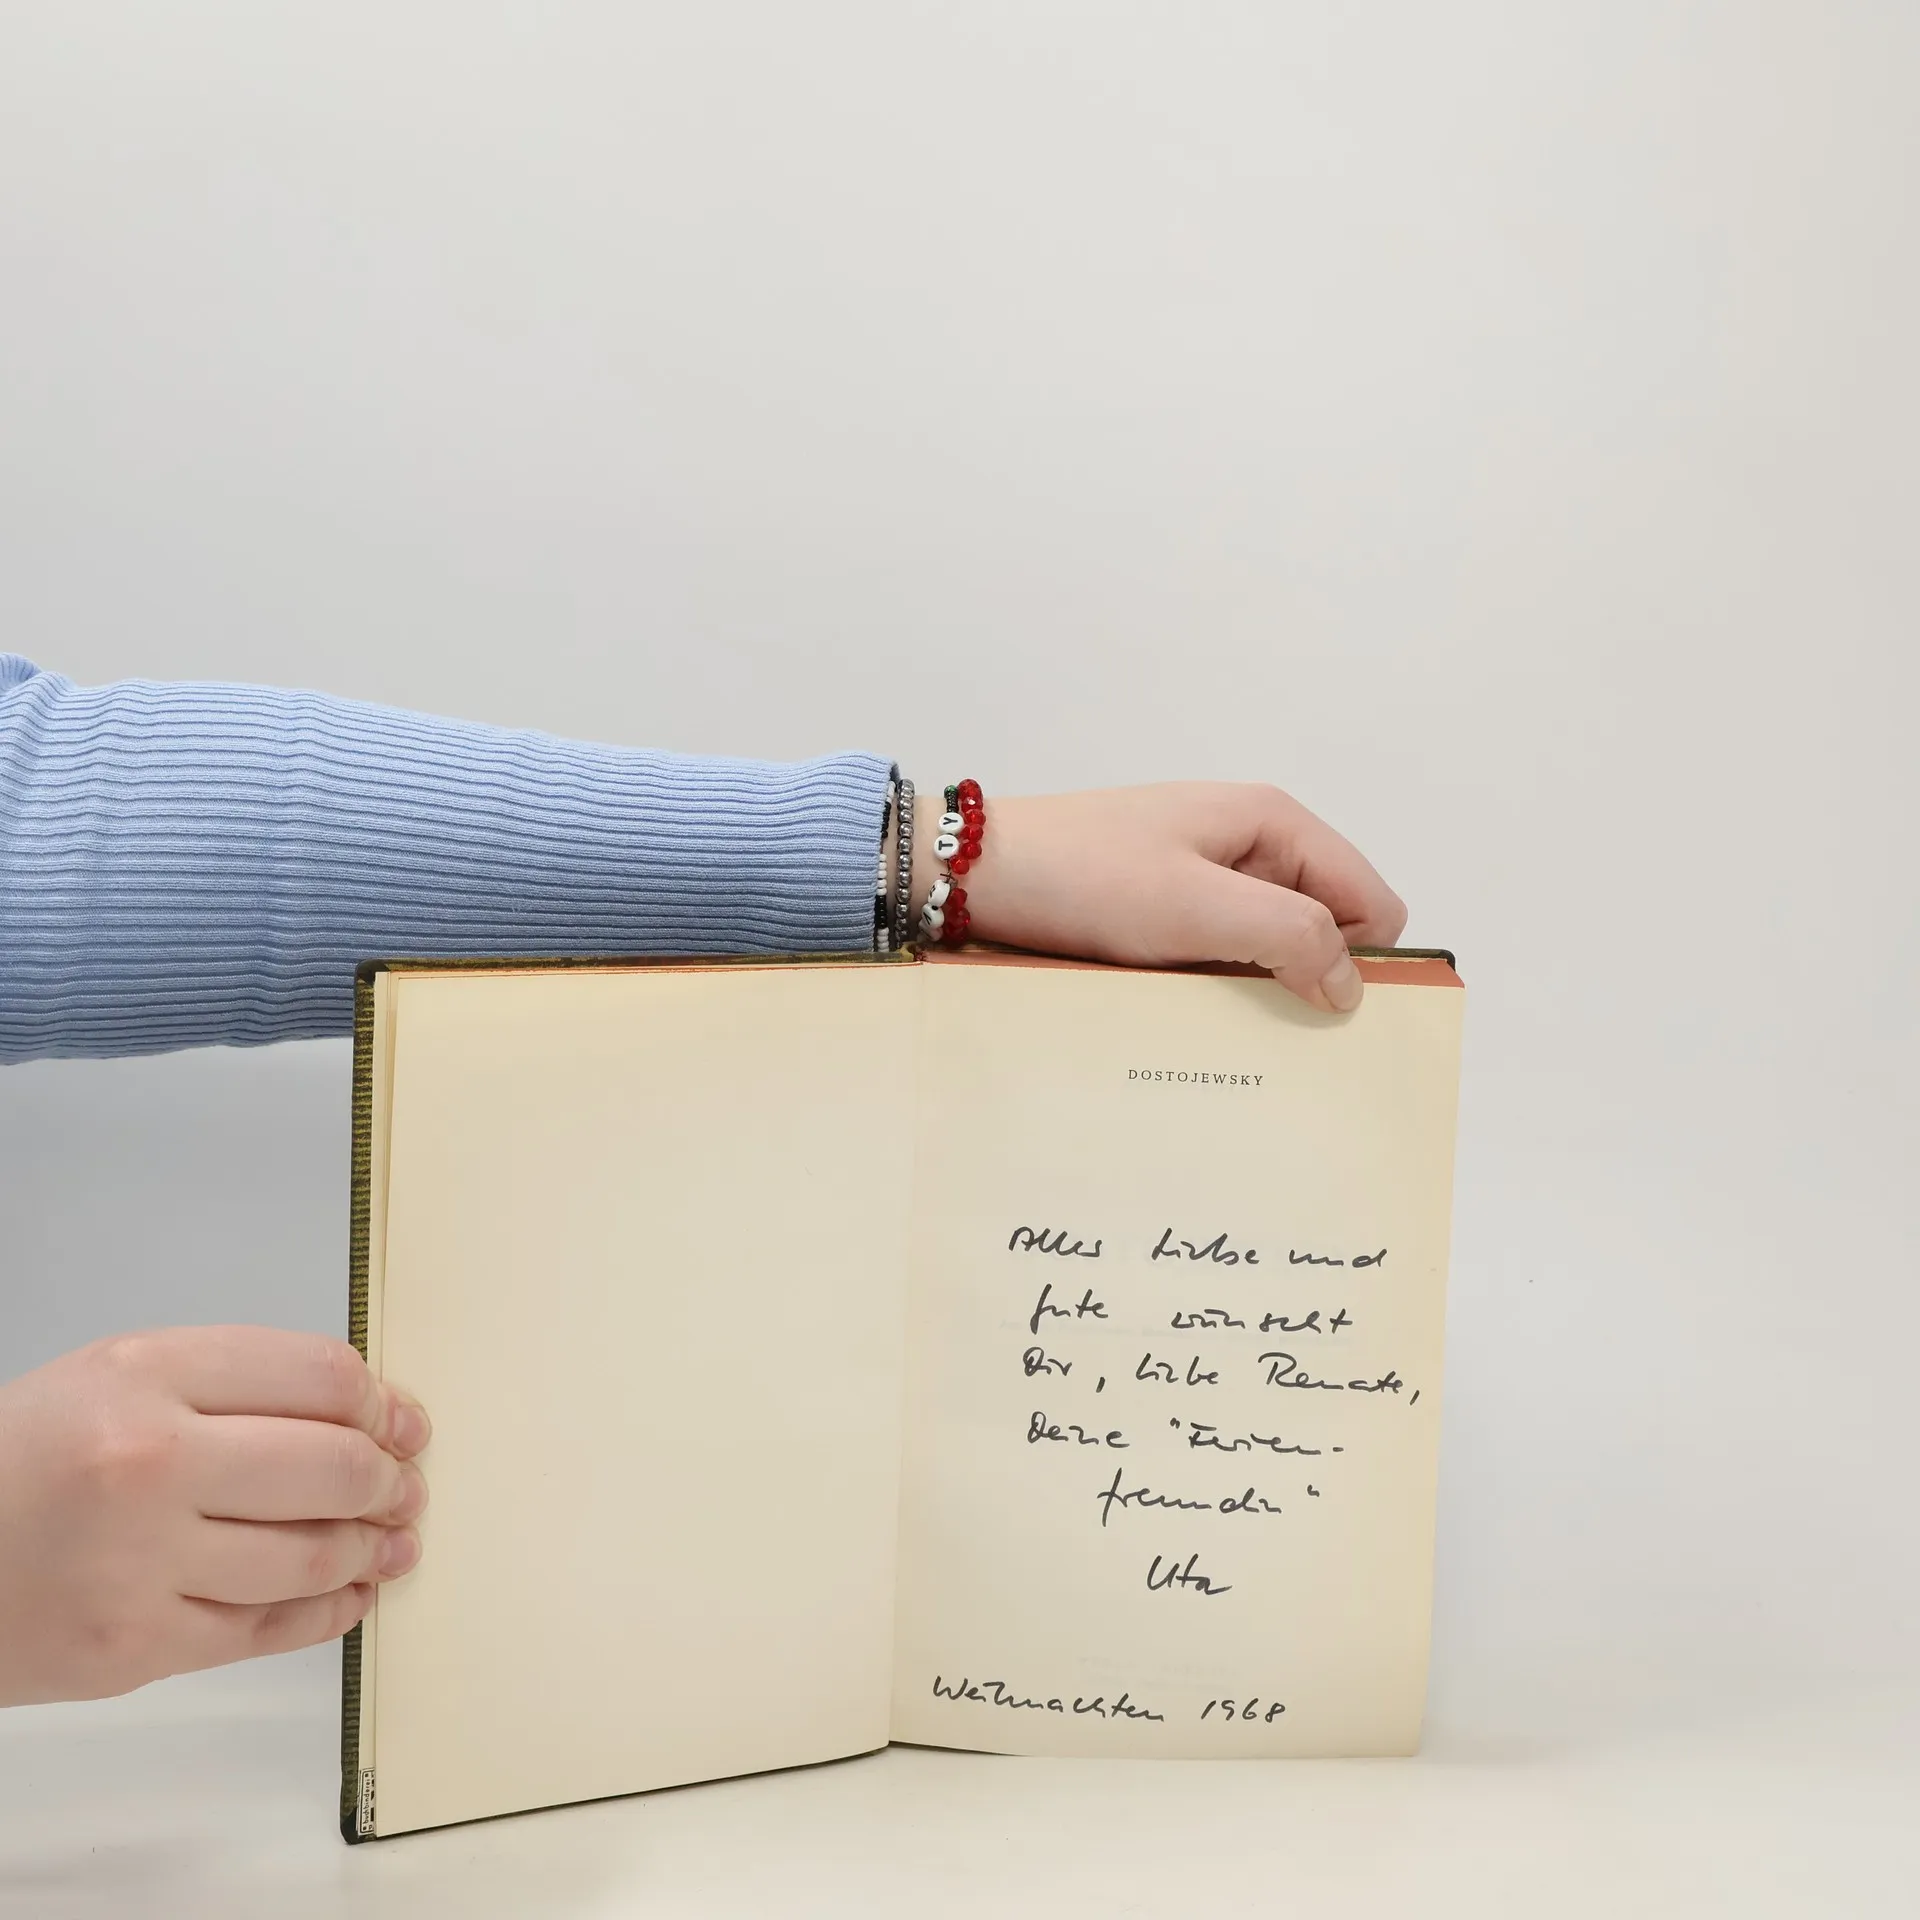 Y
T
DOSTOJEWSKY
Alles Liebe und
gute wünscht
Dir, liebe Renate,
Deine "Ferien-
freundin"
Uta
Weihnachten 1968
buchbinderei